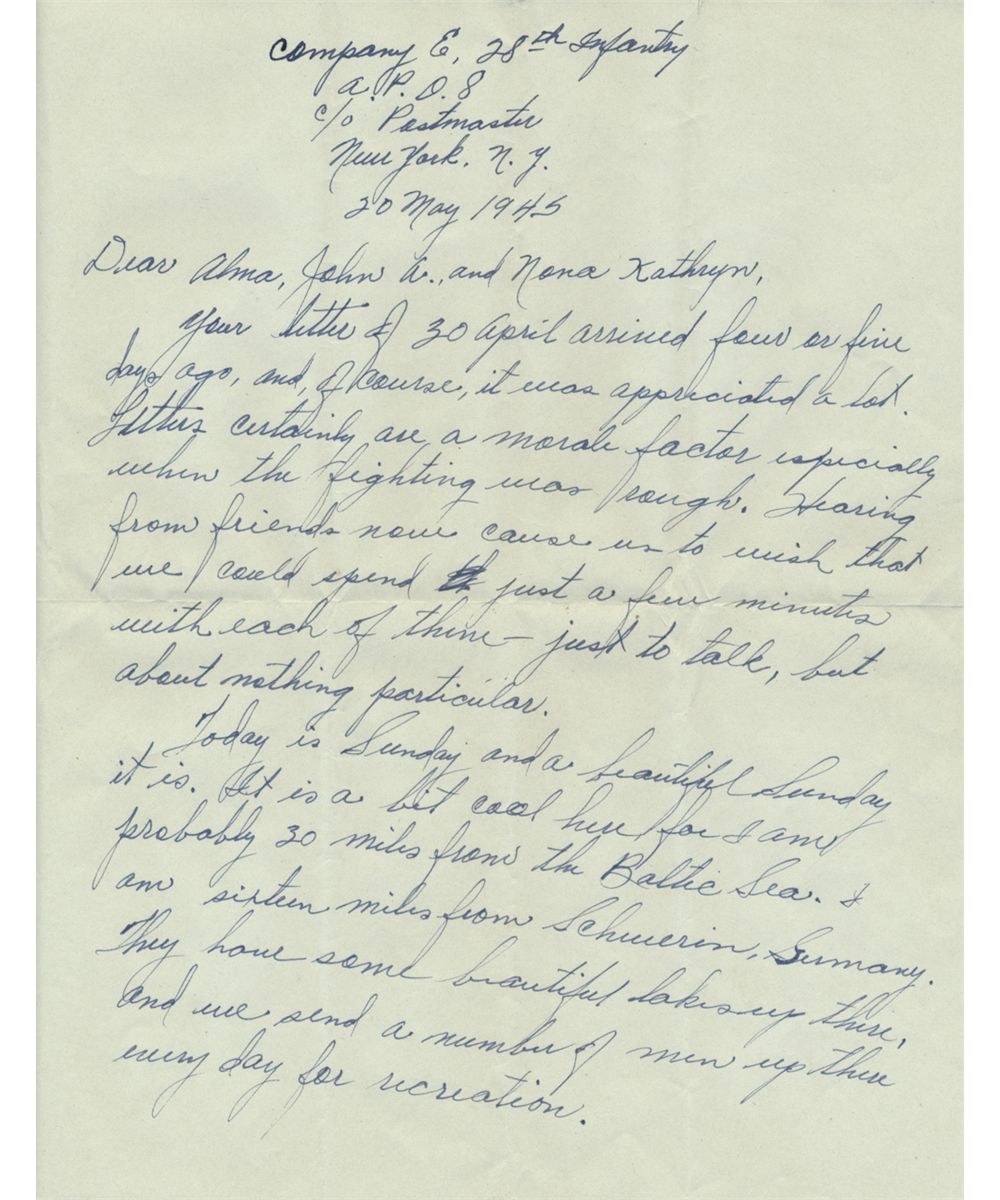 Company E, 28th Infantry
A.P.O. 8
c/o Postmaster
New York, N.Y.
20 May 1945
Dear Alma, John A., and Nona Kathryn,
Your letter of 30 April arrived four or five
days ago, and, of course, it was appreciated a lot.
Letters certainly are a morale factor especially
when the fighting was rough. Hearing
from friends now cause us to wish that
we could spend just a few minutes
with each of them – just to talk, but
about nothing particular.
Today is Sunday and a beautiful Sunday
it is. It is a bit cool here for I am
probably 30 miles from the Baltic Sea. I
am sixteen miles from Schwerin, Germany.
They have some beautiful lakes up there,
and we send a number of men up there
every day for recreation.